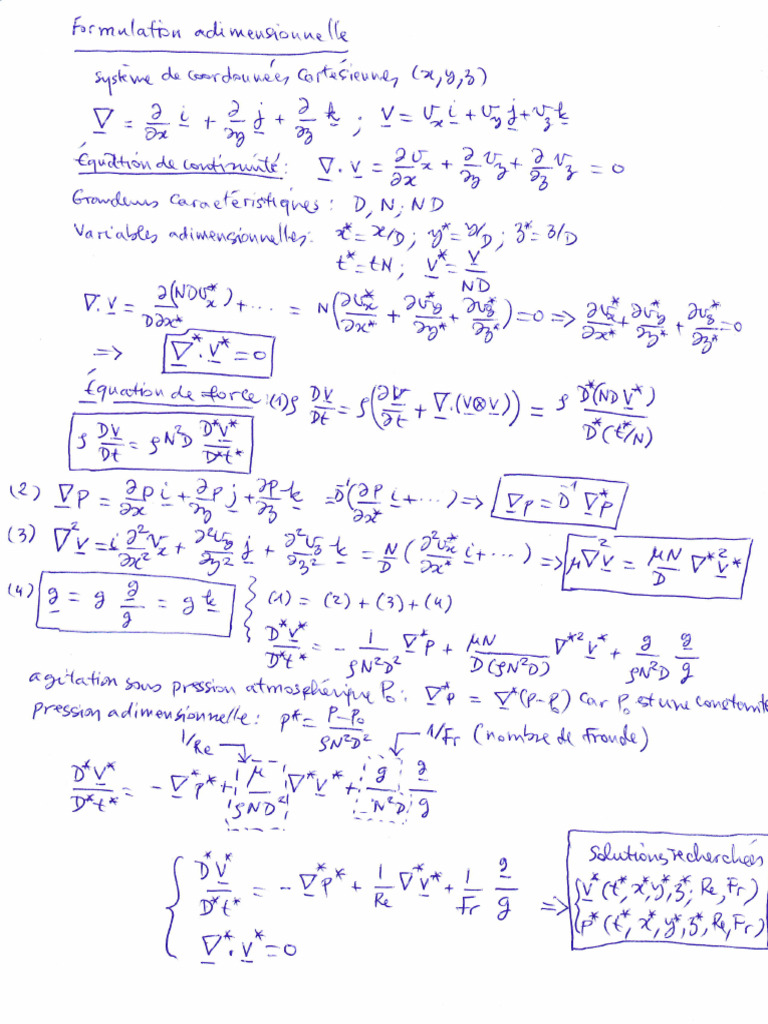 Formulation adimensionnelle
système de coordonnées cartésiennes (x,y,z)
∇ = ∂/∂x i + ∂/∂y j + ∂/∂z k ; v = v_x i + v_y j + v_z k
Équation de continuité : ∇.v = ∂v_x/∂x + ∂/∂y v_y + ∂/∂z v_z = 0
Grandeurs caractéristiques : D, N; ND
Variables adimensionnelles: x* = x/D ; y* = y/D ; z* = z/D
t* = tN ; v* = v/ND
∇.v = ∂(NDv_x*)/D∂x* + ... = N(∂v_x*/∂x* + ∂v_y*/∂y* + ∂v_z*/∂z*) = 0 => ∂v_x*/∂x* + ∂v_y*/∂y* + ∂v_z*/∂z* = 0
=> ∇*.v* = 0
Équation de force : (1) ρ Dv/Dt = ρ(∂v/∂t + ∇.(v⊗v)) = ρ D*(NDv*)/D*(t*/N)
ρ Dv/Dt = ρN²D D*v*/D*t*
(2) ∇p = ∂p/∂x i + ∂p/∂y j + ∂p/∂z k = D⁻¹(∂p/∂x* i + ...) => ∇p = D⁻¹ ∇*p
(3) ∇²v = i ∂²v_x/∂x² + ∂²v_y/∂y² j + ∂²v_z/∂z² k = N/D (∂²v_x*/∂x*² i + ...) => μ∇²v = μN/D ∇*²v*
(4) g = g g/g = g k } (1) = (2) + (3) + (4)
D*v*/D*t* = - 1/ρN²D² ∇*p + μN/D(ρN²D) ∇*² v* + g/ρN²D g/g
agitation sous pression atmosphérique P₀: ∇*p = ∇*(p-p₀) car P₀ est une constante
pression adimensionnelle : p* = P-P₀/ρN²D²
1/Re 1/Fr (nombre de Froude)
D*v*/D*t* = -∇*p* + μ/ρND² ∇*v* + g/N²D g/g
{ D*v*/D*t* = -∇*p* + 1/Re ∇*v* + 1/Fr g/g
∇*.v* = 0
=> Solutions recherchées
{ v*(t*,x*,y*,z*; Re,Fr)
p*(t*,x*,y*,z*,Re,Fr)